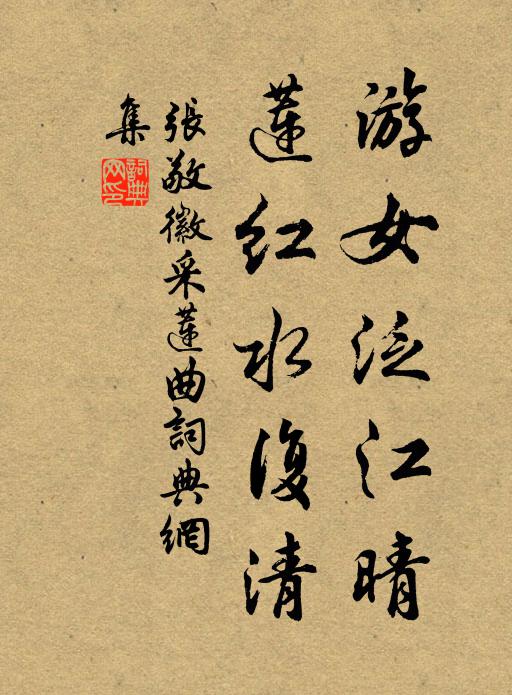 游女泛江晴
蓮紅水復清
張敬徽采蓮曲詞典網
集
詞典网印